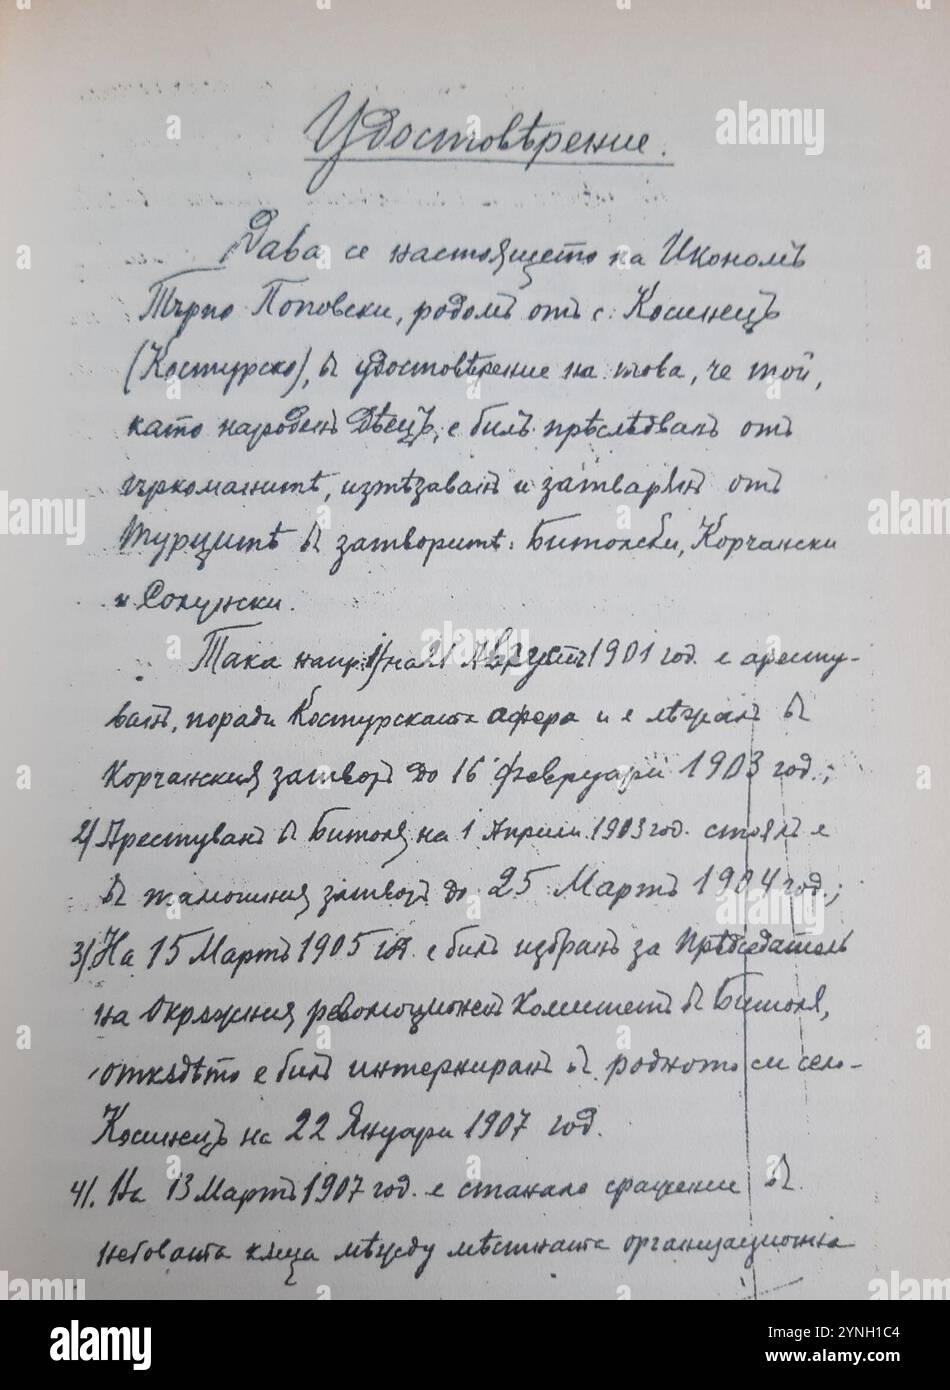 Удостовѣрение.
Дава се настоящето на Икономъ
Търпо Поповски, родомъ отъ с. Косинецъ
(Костурско), въ удостовѣрение на това, че той,
като народенъ дѣецъ, е билъ прѣслѣдванъ отъ
гъркоманитѣ, изтѣзаванъ и затварянъ отъ
Турцитѣ въ затворитѣ: Битолски, Корчански
и Солунски.
Така напр. 1) на 21 Августъ 1901 год. е аресту-
ванъ, поради Костурската афера и е лѣжалъ въ
Корчанския затворъ до 16 февруари 1903 год.;
2) Арестуванъ въ Битоля на 1 Априлъ 1903 год. стоялъ е
въ тамошния затворъ до 25 Мартъ 1904 год.;
3) На 15 Мартъ 1905 год. е билъ избранъ за Прѣдседатель
на Окръжния революционенъ Комитетъ въ Битоля,
откѫдѣто е билъ интерниранъ въ родното си село-
Косинецъ на 22 Януари 1907 год.
4). На 13 Мартъ 1907 год. е станало сражение въ
неговата кѫща мѣжду мѣстната организационна
alamy
Image ID: 2YNH1C4
www.alamy.com